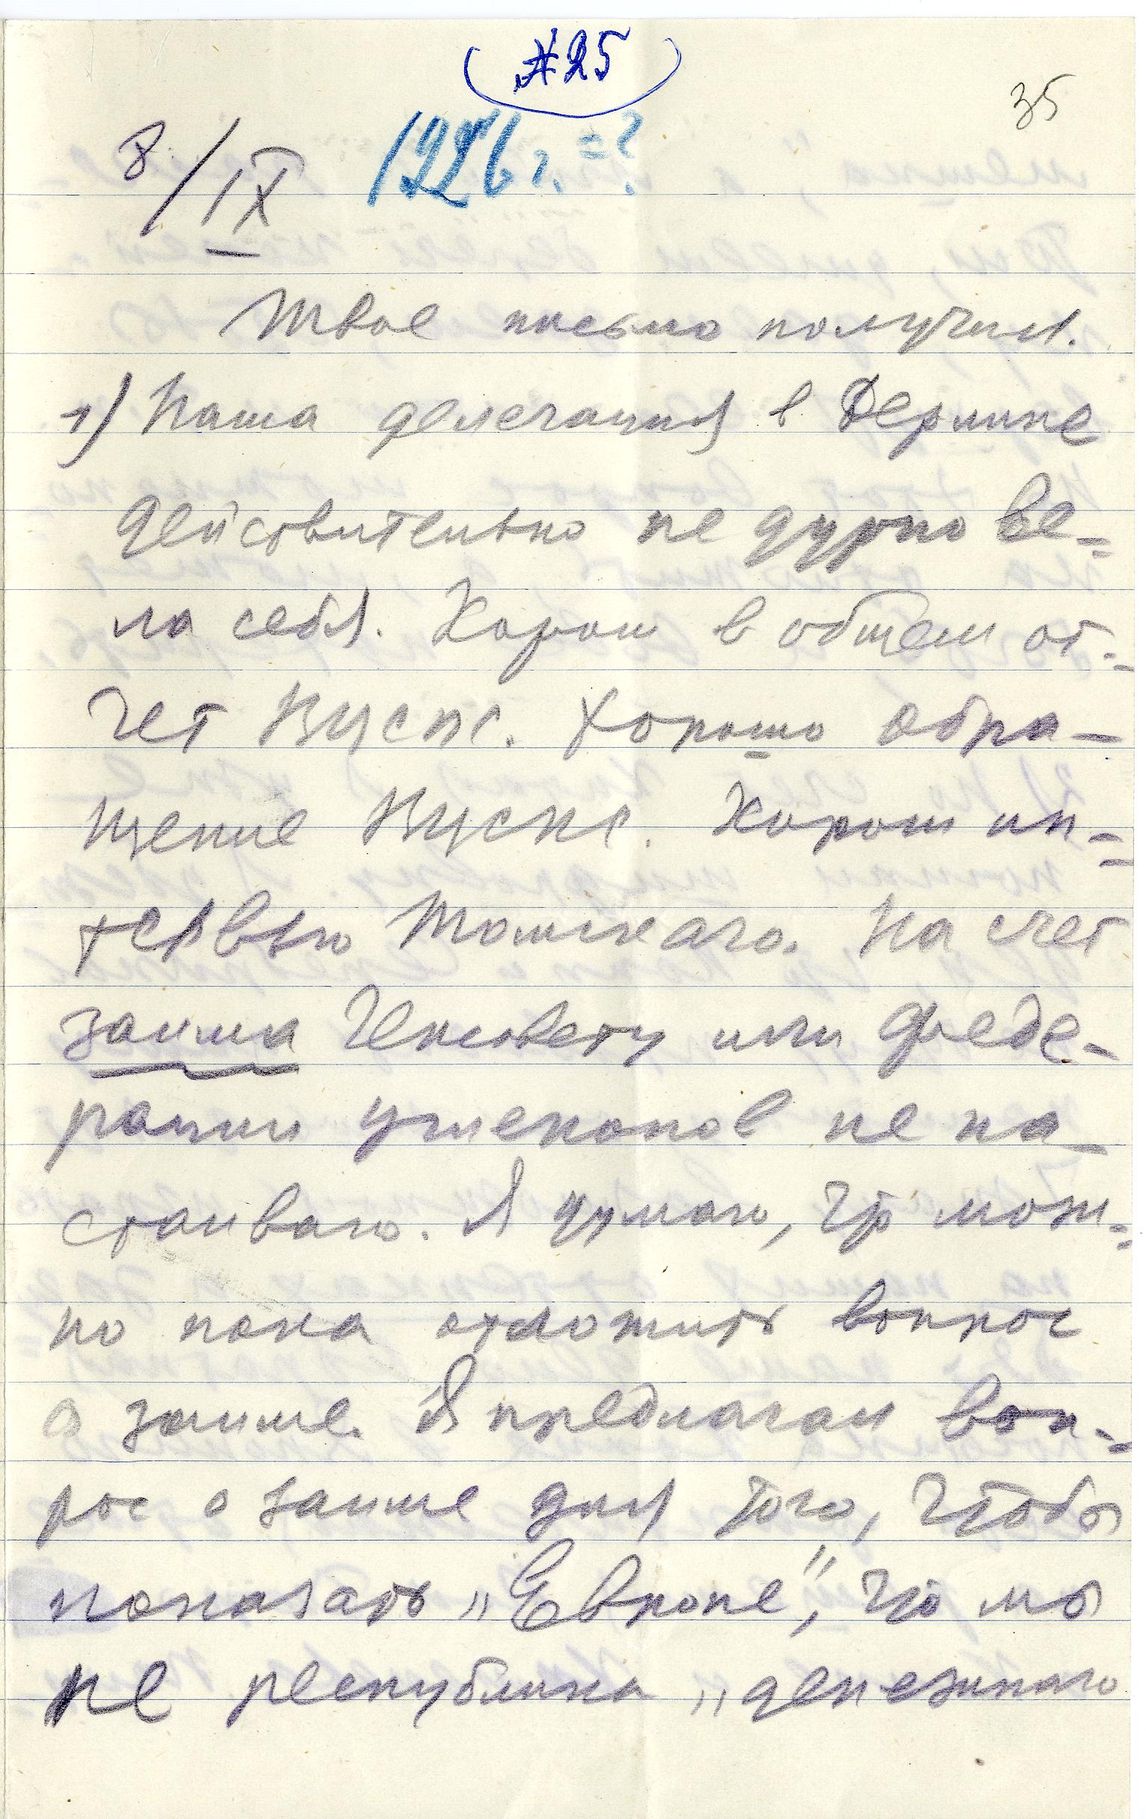 (#25)
35
8/IX 1926 г. =?
Твое письмо получил.
1) Наша делегация в Берлине
действительно не дурно ве-
ла себя. Хорош в общем от-
чет ВЦСПС. Хорошо обра-
щение ВЦСПС. Хорош ин-
тервью Томского. На счет
займа Генсовету или феде-
рации углекопов не на-
стаиваю. Я думаю, что мож-
но пока отложить вопрос
о займе. Я предлагал воп-
рос о займе для того, чтобы
показать „Европе", что мы
не республика „денежнаго